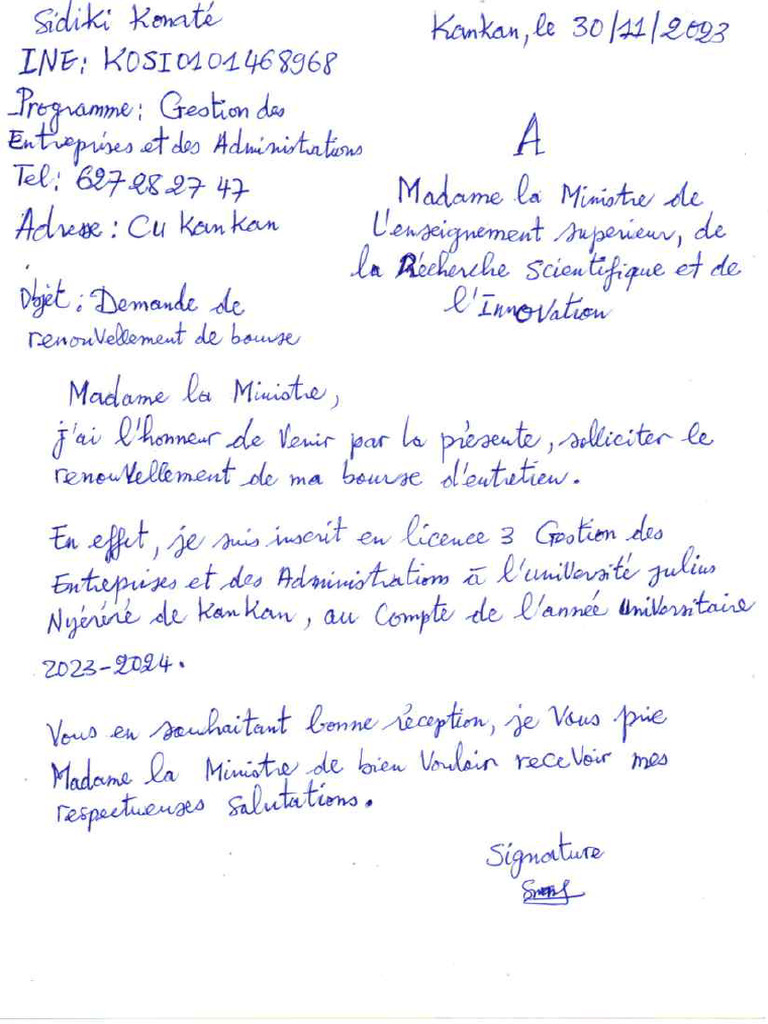 Sidiki Konaté
INE: KOSI0101468968
Programme: Gestion des
Entreprises et des Administrations
Tel: 627 28 27 47
Adresse: CU KanKan
Objet: Demande de
renouvellement de bourse
Kankan, le 30/11/2023
A
Madame la Ministre de
L'enseignement superieur, de
la Recherche Scientifique et de
l'Innovation
Madame la Ministre,
j'ai l'honneur de venir par la présente, solliciter le
renouvellement de ma bourse d'entretien.
En effet, je suis inscrit en licence 3 Gestion des
Entreprises et des Administrations à l'université julius
Nyéréré de KanKan, au compte de l'année universitaire
2023-2024.
Vous en souhaitant bonne réception, je vous prie
Madame la Ministre de bien vouloir recevoir mes
respectueuses salutations.
Signature